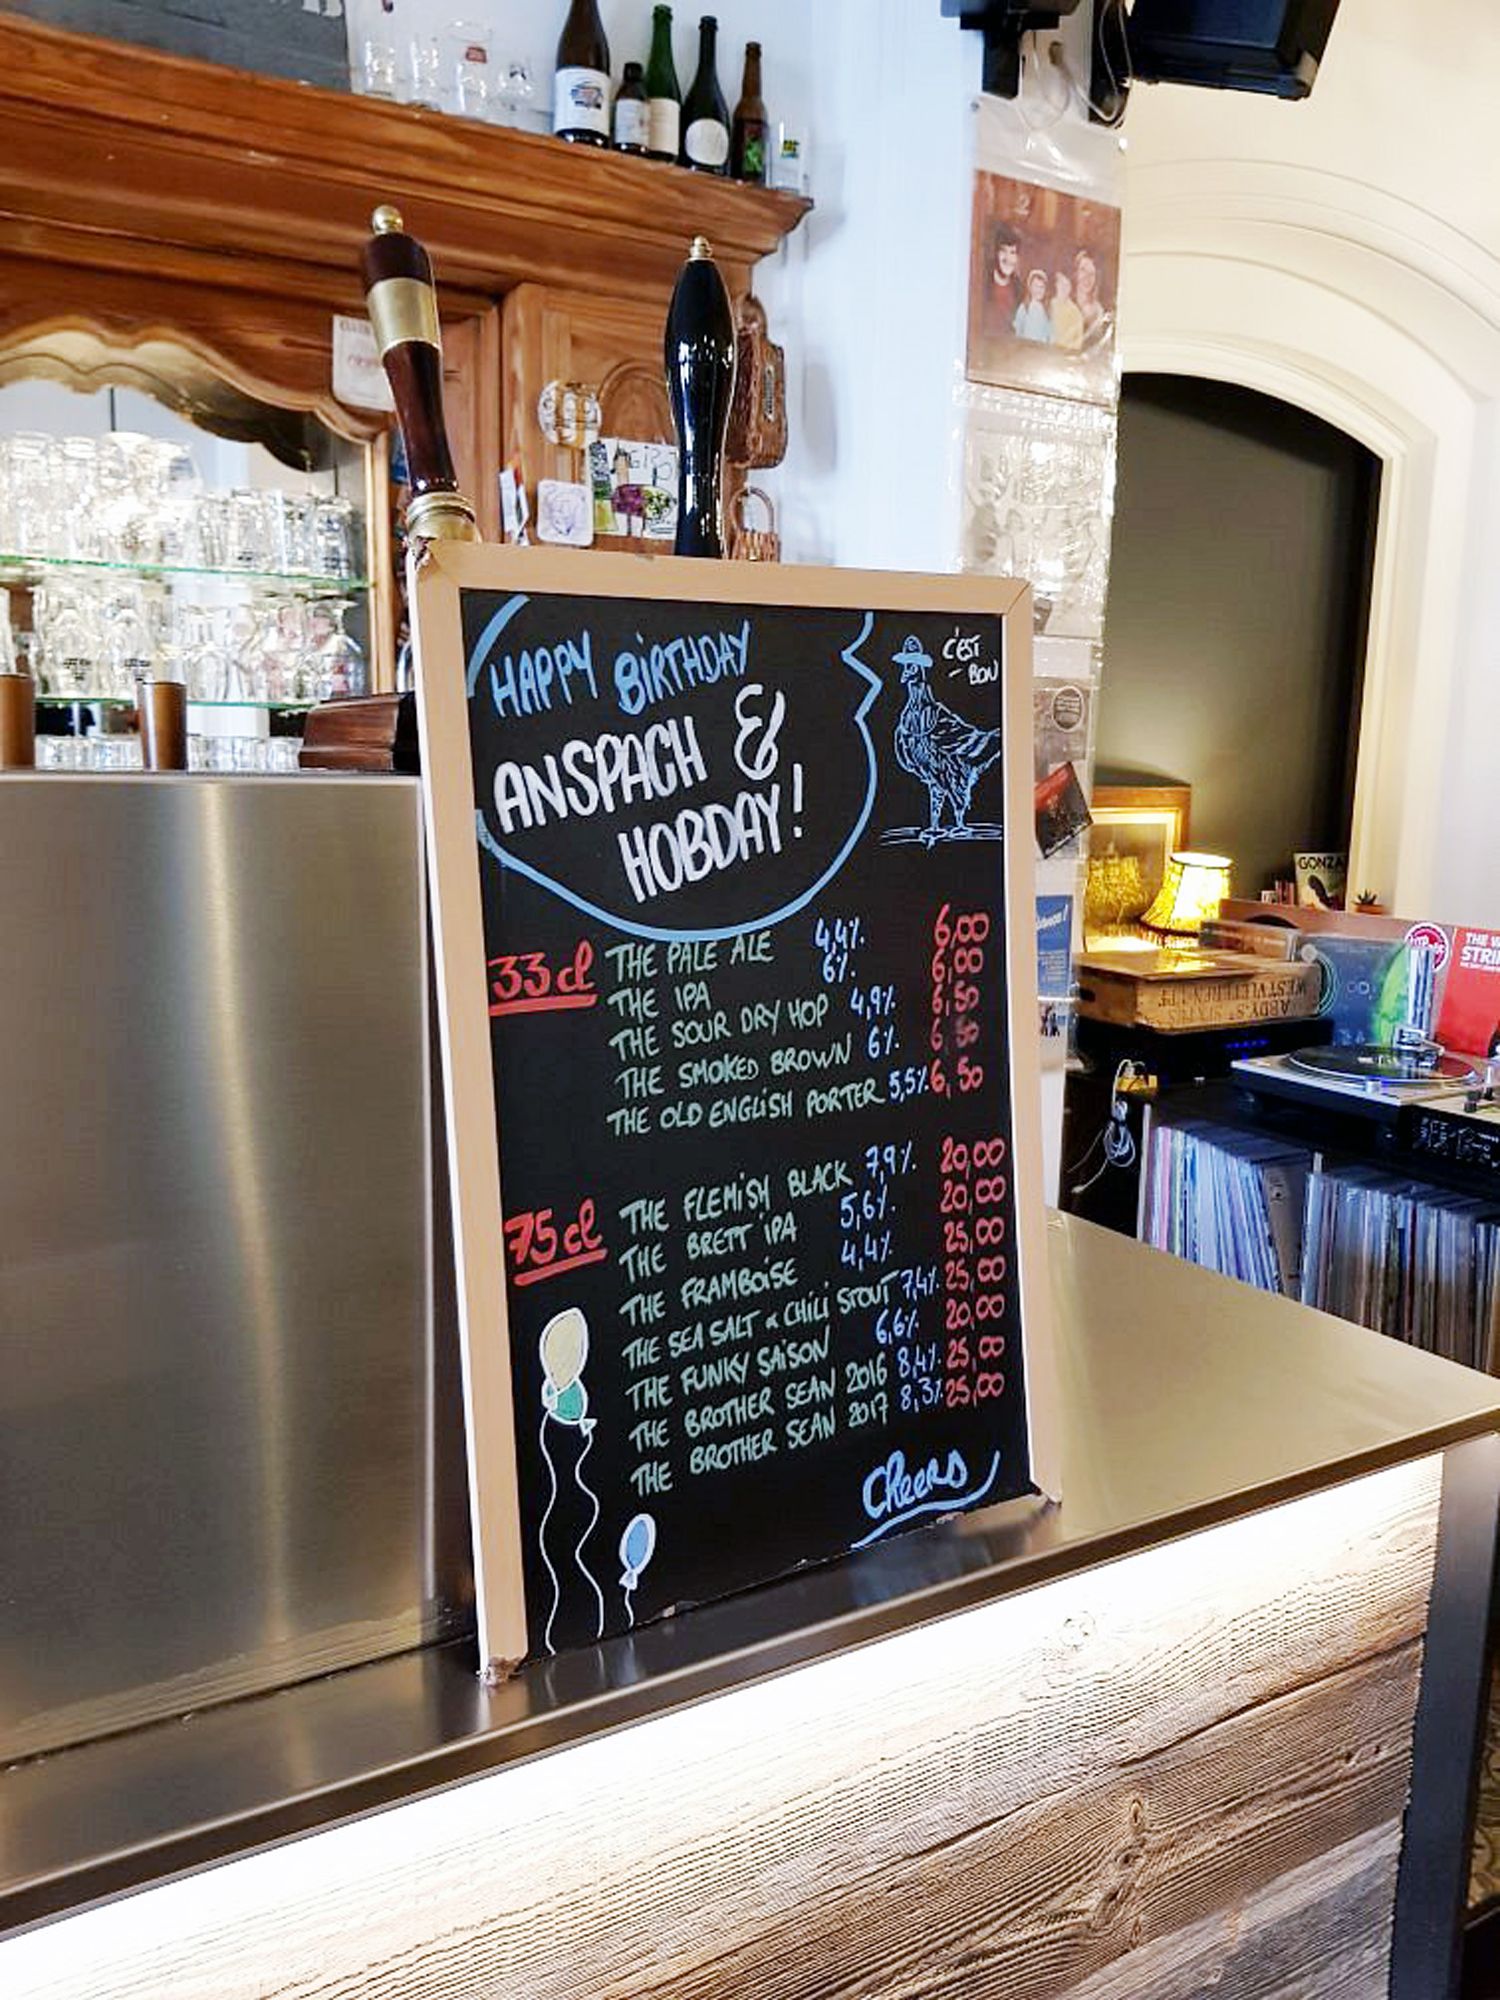 HAPPY BIRTHDAY
ANSPACH &
HOBDAY!
C'EST
BON
33cl THE PALE ALE 4,4%. 6,00
THE IPA 6%. 6,00
THE SOUR DRY HOP 4,9%. 6,50
THE SMOKED BROWN 6%. 6,50
THE OLD ENGLISH PORTER 5,5%. 6,50
75cl THE FLEMISH BLACK 7,9%. 20,00
THE BRETT IPA 5,6%. 20,00
THE FRAMBOISE 4,4%. 25,00
THE SEA SALT & CHILI STOUT 7,4%. 25,00
THE FUNKY SAISON 6,6%. 20,00
THE BROTHER SEAN 2016 8,4%. 25,00
THE BROTHER SEAN 2017 8,3%. 25,00
Cheers
GONZA
THE W
STRI
WESTVLETEREN